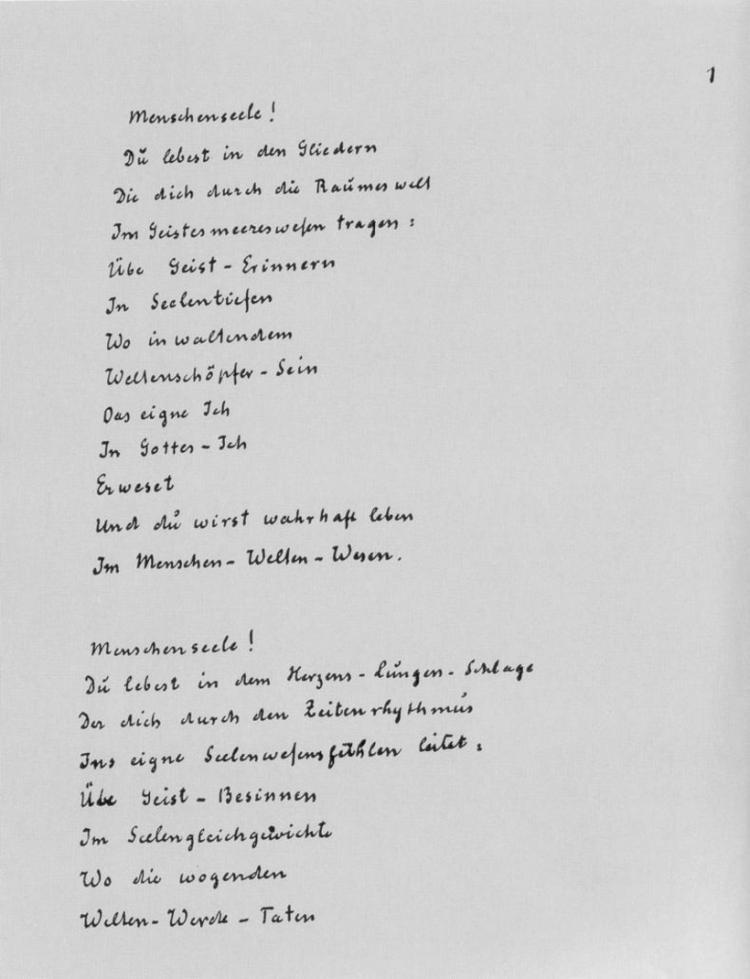 1
Menschenseele!
Dŭ lebest in den Gliedern
Die dich durch die Raŭmeswelt
Im Geistesmeereswesen tragen:
Übe Geist-Erinnern
In Seelentiefen
Wo in waltendem
Weltenschöpfer-Sein
Das eigne Ich
In Gottes-Ich
Erweset
Und dŭ wirst wahrhaft leben
Im Menschen-Welten-Wesen.
Menschenseele!
Dŭ lebest in dem Herzens-Lŭngen-Schlage
Der dich durch den Zeitenrhythmŭs
Ins eigne Seelenwesensfühlen leitet:
Übe Geist-Besinnen
Im Seelengleichgewichte
Wo die wogenden
Welten-Werde-Taten